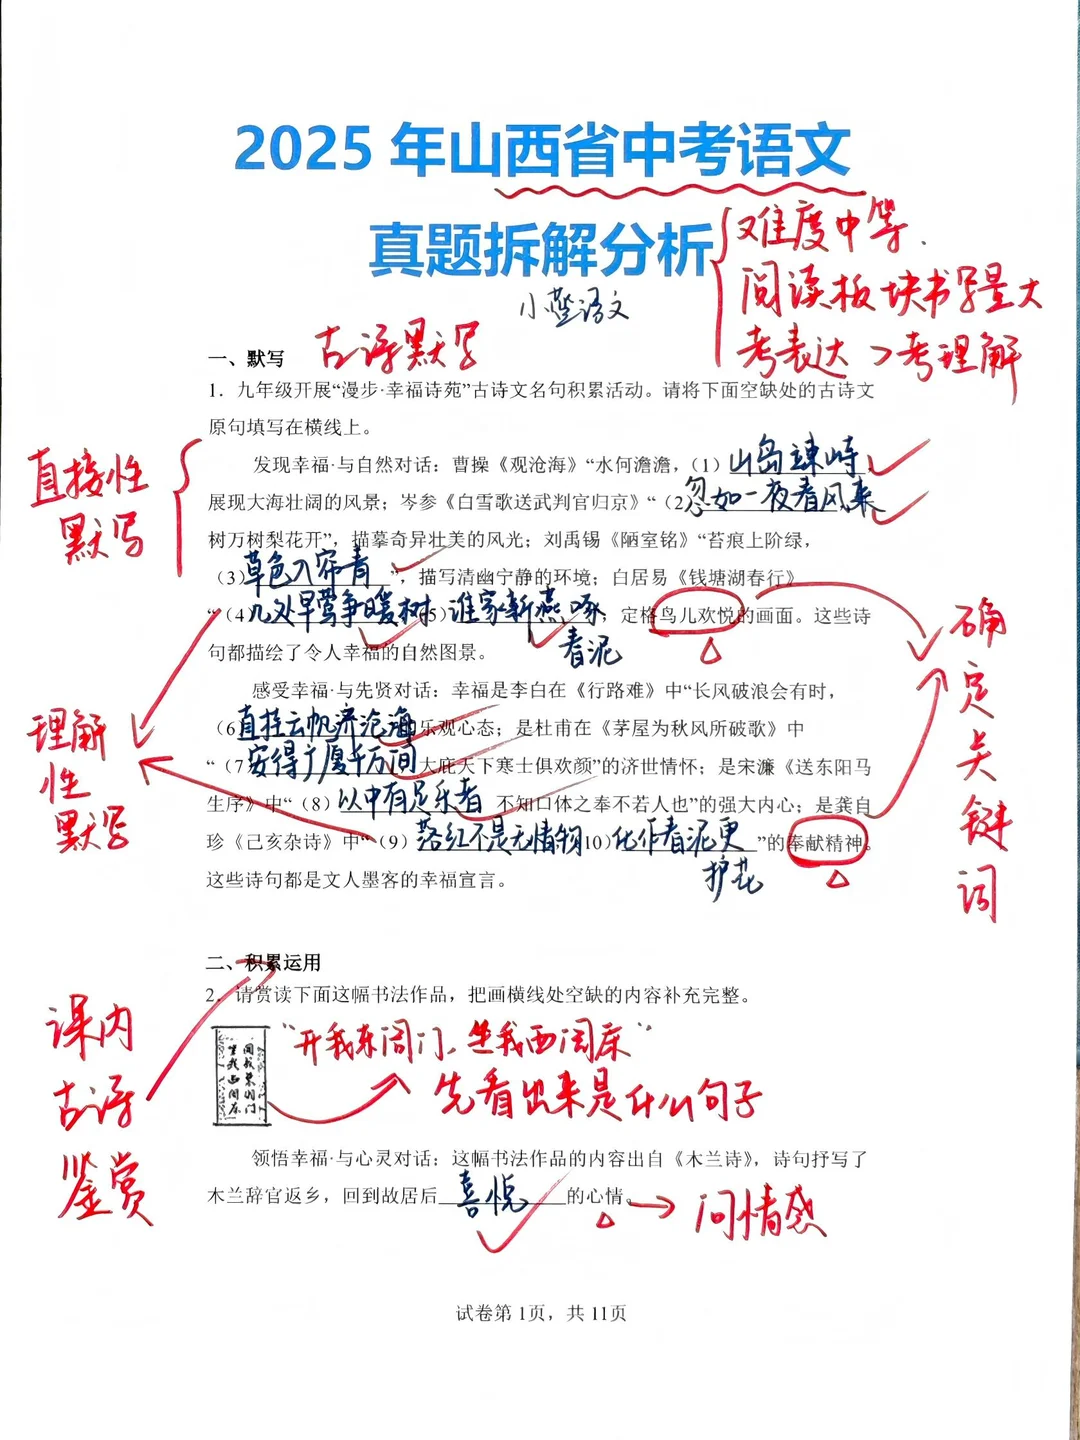 2025 年山西省中考语文
真题拆解分析
难度中等.
阅读板块书写量大
考表达 > 考理解
小莹语文
一、默写
古诗默写
1. 九年级开展“漫步·幸福诗苑”古诗文名句积累活动。请将下面空缺处的古诗文
原句填写在横线上。
直接性
默写
发现幸福·与自然对话：曹操《观沧海》“水何澹澹，(1) 山岛竦峙，
展现大海壮阔的风景；岑参《白雪歌送武判官归京》“（2 忽如一夜春风来
树万树梨花开”，描摹奇异壮美的风光；刘禹锡《陋室铭》“苔痕上阶绿，
（3）草色入帘青”，描写清幽宁静的环境；白居易《钱塘湖春行》
“（4 几处早莺争暖树 5）谁家新燕啄，定格鸟儿欢悦的画面。这些诗
春泥
句都描绘了令人幸福的自然图景。
确定关键词
理解性
默写
感受幸福·与先贤对话：幸福是李白在《行路难》中“长风破浪会有时，
（6 直挂云帆济沧海的乐观心态；是杜甫在《茅屋为秋风所破歌》中
“（7 安得广厦千万间 大庇天下寒士俱欢颜”的济世情怀；是宋濂《送东阳马
生序》中“（8）以中有足乐者 不知口体之奉不若人也”的强大内心；是龚自
珍《己亥杂诗》中“（9）落红不是无情物 10）化作春泥更”的奉献精神。
护花
这些诗句都是文人墨客的幸福宣言。
二、积累运用
2. 请赏读下面这幅书法作品，把画横线处空缺的内容补充完整。
课内
古诗
鉴赏
开我东阁门
坐我西阁床
“开我东阁门、坐我西阁床”
先看出来是什么句子
领悟幸福·与心灵对话：这幅书法作品的内容出自《木兰诗》，诗句抒写了
木兰辞官返乡，回到故居后喜悦的心情。
问情感
试卷第 1页，共 11页